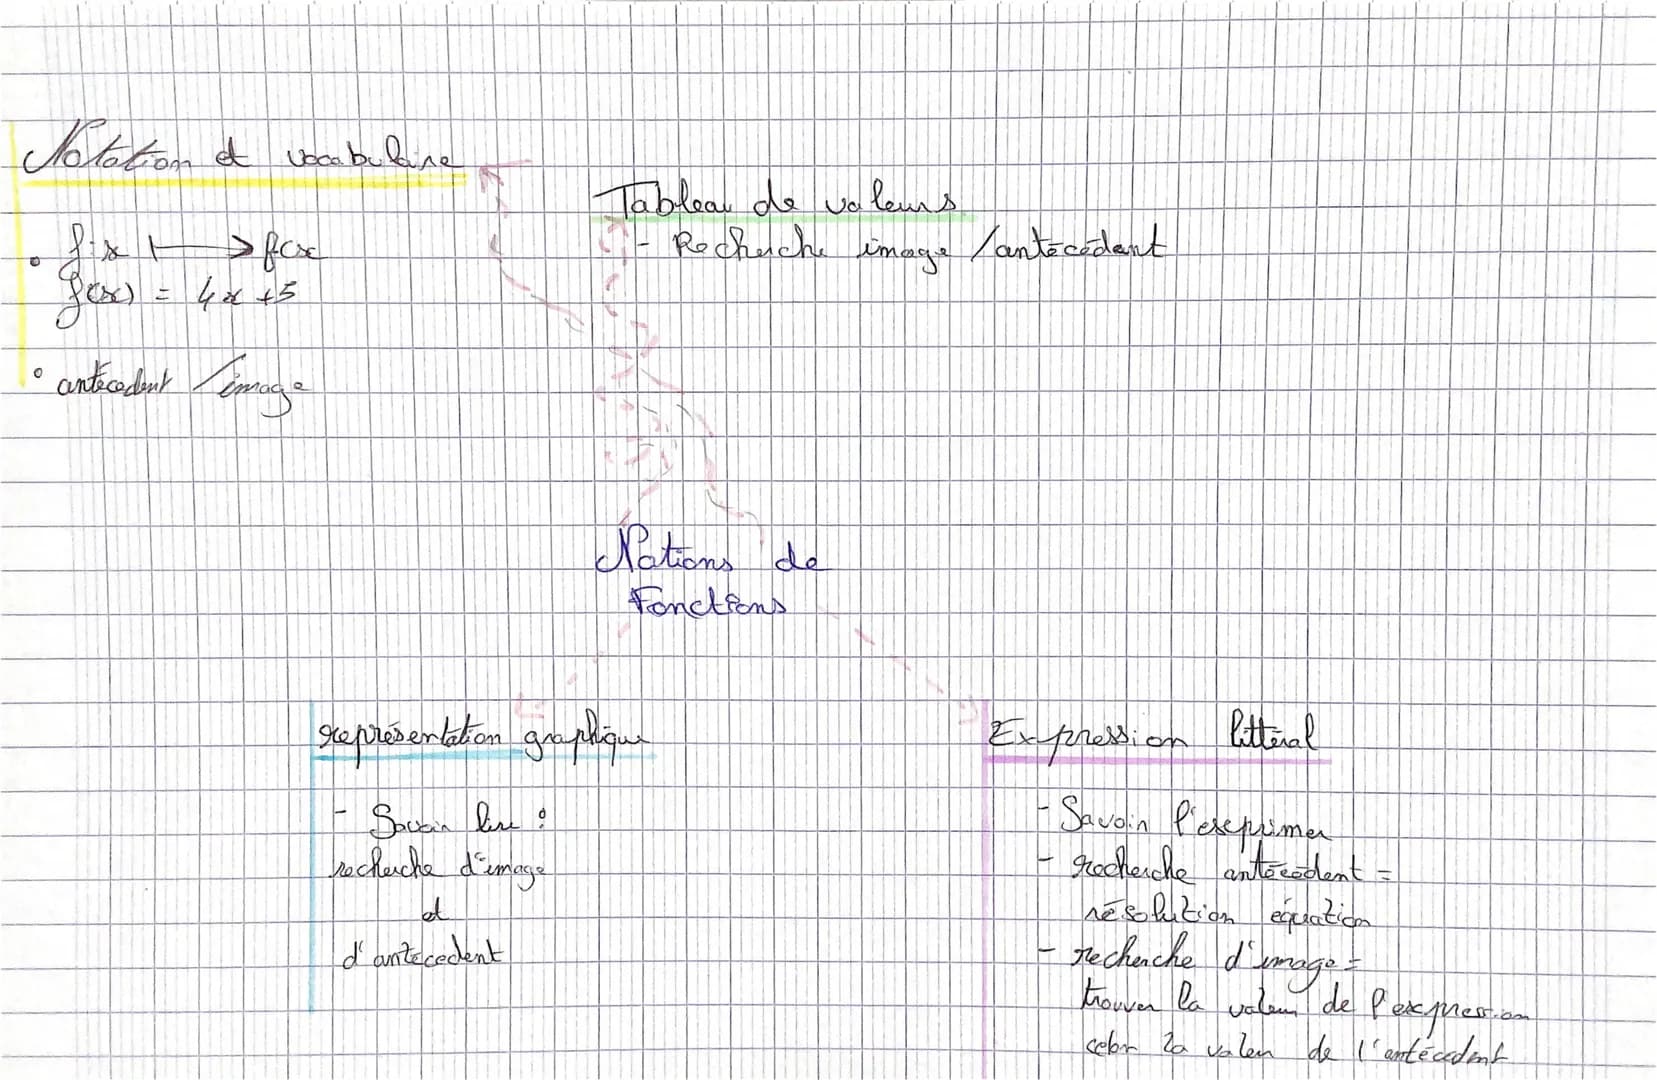 Notation et vocabulaire
• f:x ⟼ f(x
f(x) = 4x +5
• antécedent / image
Tableau de valeurs
- Recherche image / antécédent
Notions de
Fonctions
représentation graphique
- Savoir lire :
recherche d'image
et
d'antécedent
Expression littéral
- Savoir l'exprimer
- recherche antécédent =
résolution équation
- recherche d'image =
trouver la valeur de l'expression
celon la valeu de l'antécedent